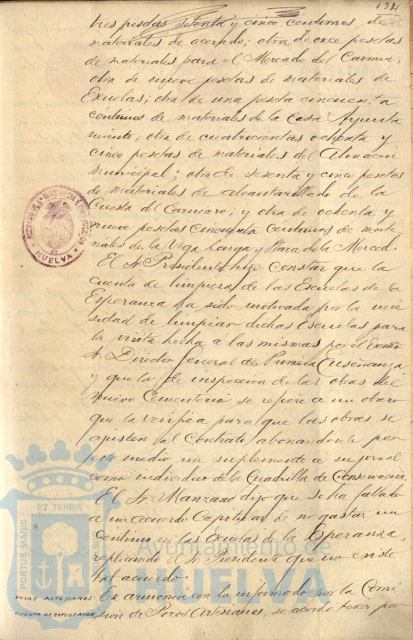 134
tres pesetas setenta y cinco centimos, de
materiales de acerado; otra de once pesetas
de materiales para el Mercado del Carmen;
otra de nueve pesetas de materiales de
Escuelas; otra de una peseta cincuenta
centimos de materiales de la Casa Ayunta
miento; otra de cuatrocientas ochenta y
cinco pesetas de materiales del Almacen
Municipal; otra de sesenta y cinco pesetas
de materiales de alcantarillado de la
Cuesta del Carmen; y otra de ochenta y
nueve pesetas cincuenta centimos de mate
riales de la Vega Larga y Plaza de la Merced.
El Sr. Presidente hizo constar que la
cuenta de limpieza de las Escuelas de la
Esperanza ha sido motivada por la nece
sidad de limpiar dichas Escuelas para
la visita hecha a las mismas por el Excmo
Sr. Director General de Primera Enseñanza
y que la de inspeccion de las obras del
nuevo Cementerio se refiere a un obrero
que la verifica para que las obras se
ajusten al Contrato, abonandosele por
este medio un suplemento a su jornal
como individuo de la Cuadrilla de Conservacion.
El Sr. Manzano dijo que se ha faltado
a un acuerdo Capitular de no gastar un
centimo en las Escuelas de la Esperanza,
replicando el Sr. Presidente que no existe
tal acuerdo.
POZOS ARTESIANOS.
En armonia con lo informado por la Comi
sion de Pozos Artesianos, se acordó
HUELVA
PORTUS MARIS
ET TERRÆ
Ayuntamiento de
HUELVA